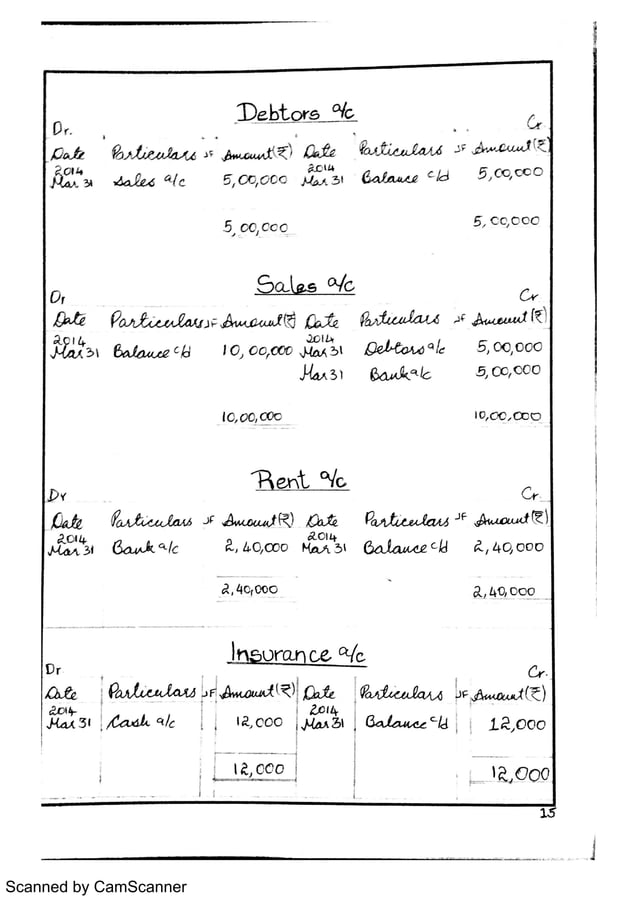 Debtors a/c
Dr. Cr
Date Particulars JF Amount(₹) Date Particulars JF Amount(₹)
2014 2014
Mar 31 Sales a/c 5,00,000 Mar 31 Balance c/d 5,00,000
5,00,000 5,00,000
Sales a/c
Dr Cr
Date Particulars JF Amount(₹) Date Particulars JF Amount(₹)
2014 2014
Mar 31 Balance c/d 10,00,000 Mar 31 Debtors a/c 5,00,000
Mar 31 Bank a/c 5,00,000
10,00,000 10,00,000
Rent a/c
Dr Cr.
Date Particulars JF Amount(₹) Date Particulars JF Amount(₹)
2014 2014
Mar 31 Bank a/c 2,40,000 Mar 31 Balance c/d 2,40,000
2,40,000 2,40,000
Insurance a/c
Dr Cr.
Date Particulars JF Amount(₹) Date Particulars JF Amount(₹)
2014 2014
Mar 31 Cash a/c 12,000 Mar 31 Balance c/d 12,000
12,000 12,000
15
Scanned by CamScanner